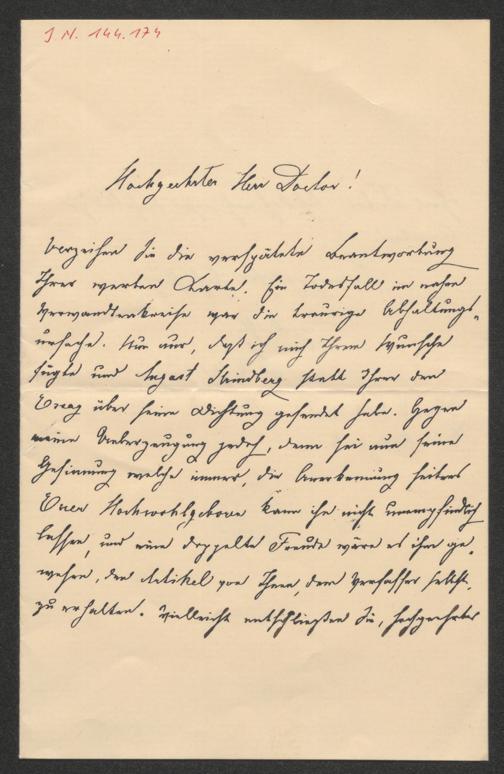 J. N. 144.174
Hochgeehrter Herr Doctor!
Verzeihen Sie die verspätete Beantwortung
Ihrer werten Karte. Ein Todesfall im nahen
Verwandtenkreise war die traurige Abhaltungs-
ursache. Nun nur, daß ich mich Ihrem Wunsche
fügte und August Strindberg statt Ihrer den
Essay über seine Dichtung gesendet habe. Gegen
meine Ueberzeugung jedoch, denn sei nun seine
Gesinnung welche immer, die Anerkennung seitens
Euer Hochwohlgeboren kann ihn nicht unempfindlich
lassen, und eine doppelte Freude wäre es ihm ge-
wesen, den Artikel von Ihnen, dem Verfasser selbst,
zu erhalten. Vielleicht entschließen Sie, hochgeehrter